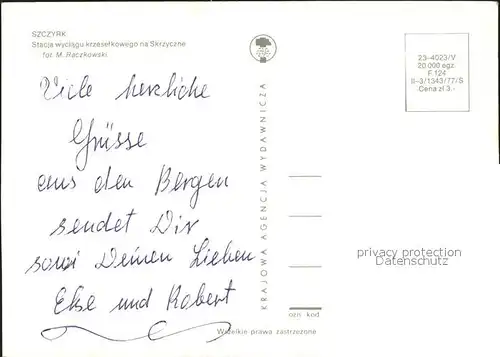 SZCZYRK
Stacja wyciągu krzesełkowego na Skrzyczne
fot. M. Raczkowski
Viele herzliche
Grüsse
aus den Bergen
sendet Dir
sowi Deinen Lieben
Else und Robert
KRAJOWA AGENCJA WYDAWNICZA
23-4023/V
20 000 egz.
F.124
II-3/1343/77/S
Cena zł 3.-
privacy protection
Datenschutz
ozn. kod
Wszelkie prawa zastrzeżone